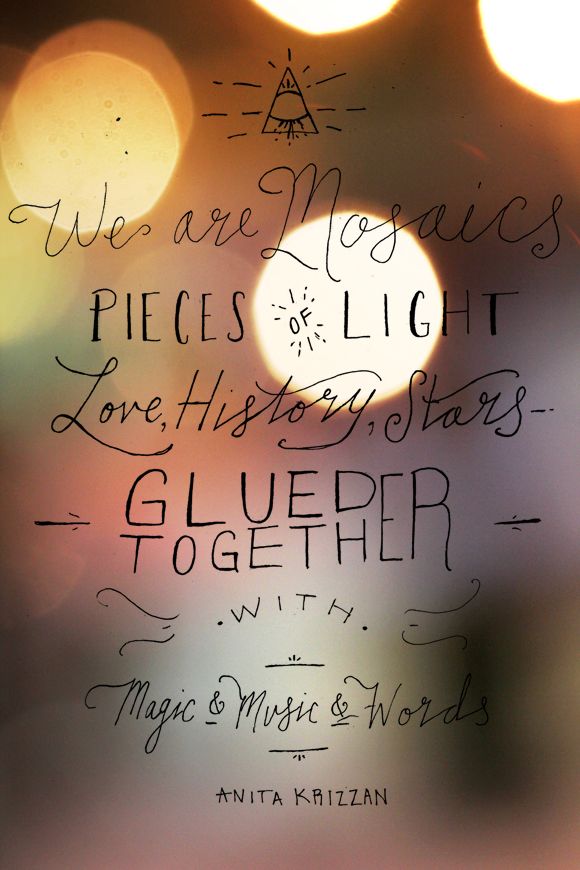 We are Mosaics
PIECES OF LIGHT
Love, History, Stars-
GLUED
TOGETHER
·WITH·
Magic & Music & Words
ANITA KRIZZAN